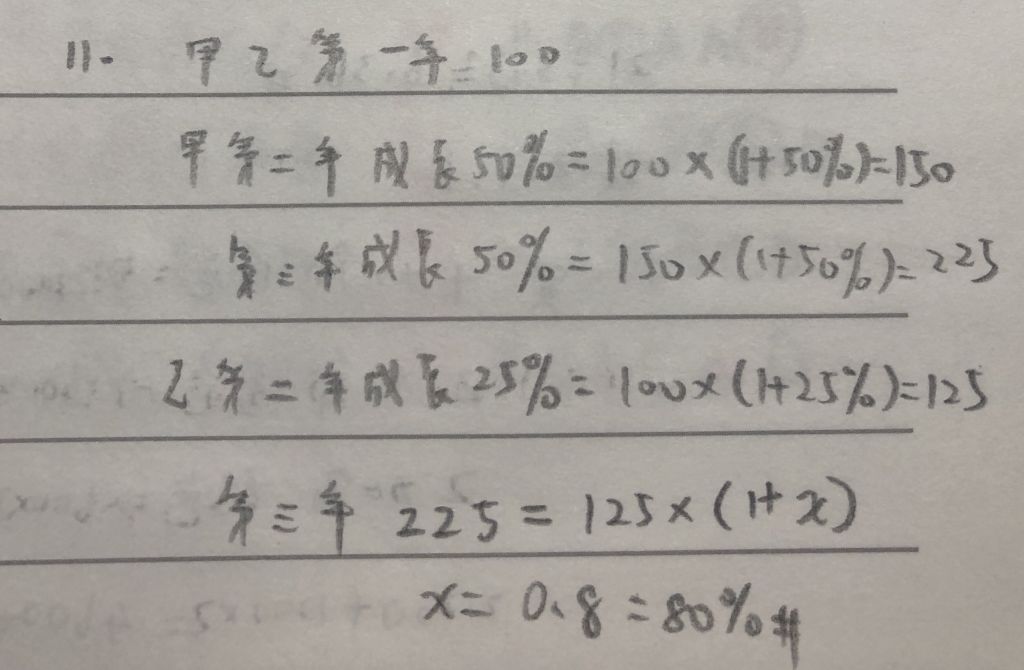 11. 甲乙第一年 100
甲第二年成長50%=100×(1+50%)=150
第三年成長50%=150×(1+50%)=225
乙第二年成長25%=100×(1+25%)=125
第三年 225=125×(1+x)
x=0.8=80%#